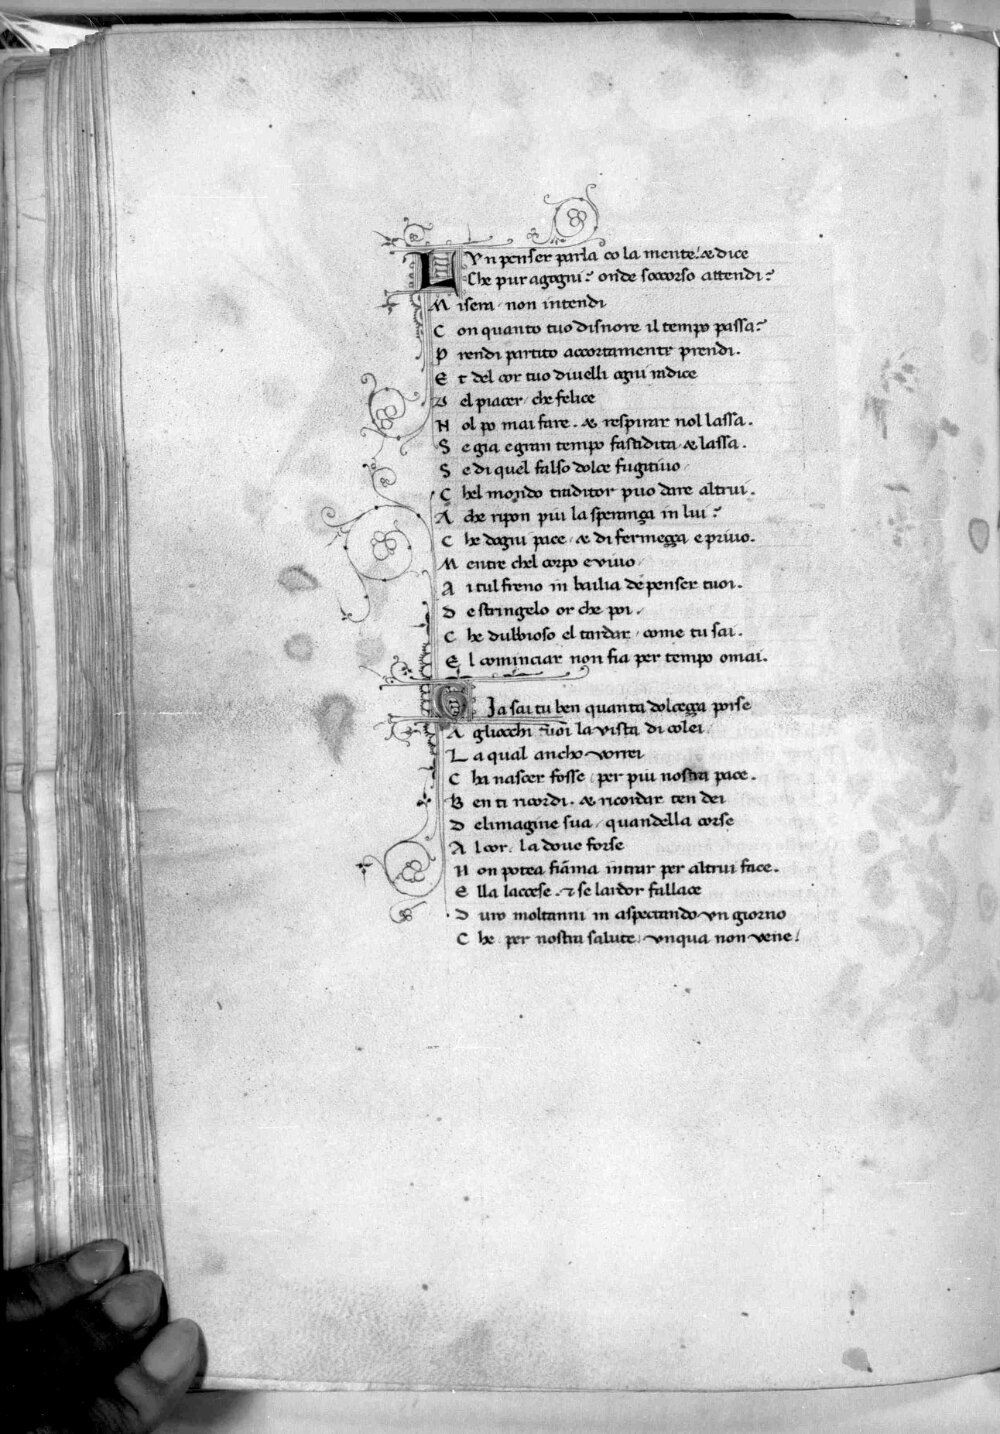 L Vn penser parla co la mente. & dice
Che pur agogni? onde soccorso attendi?
Misera non intendi
Con quanto tuo disnore il tempo passa?
Prendi partito accortamente prendi.
Et del cor tuo diuelli ogni radice
Del piacer che felice
Nol po mai fare. & respirar nol lassa.
Se gia e gran tempo fastidita & lassa.
Se di quel falso dolce fugitiuo
Chel mondo traditor puo dare altrui.
A che ripon piu la speranza in lui?
Che dogni pace & di fermezza e priuo.
Mentre chel corpo e viuo
Ai tul freno in bailia de penser tuoi.
De stringelo or che poi
Che dubbioso el tardar come tu sai.
El cominciar non fia per tempo omai.
Gia sai tu ben quanta dolcezza porse
Agliocchi n̄ri la vista di colei
La qual ancho vorrei
Cha nascer fosse per piu nostra pace.
Ben ti ricordi. & ricordar ten dei
Delimagine sua quandella corse
Al cor. la doue forse
Non potea fiāma intrar per altrui face.
Ella laccese. & se lardor fallace
Duro moltanni in aspectando vn giorno
Che per nostra salute vnqua non vene.